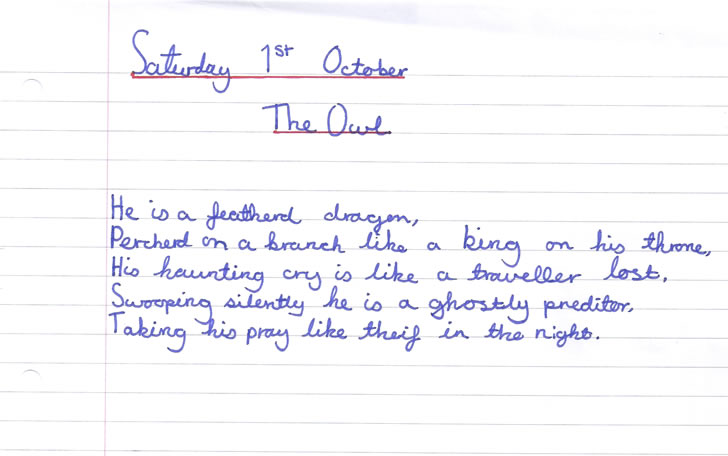 Saturday 1st October
The Owl
He is a featherd dragon,
Percherd on a branch like a king on his throne,
His haunting cry is like a traveller lost.
Swooping silently he is a ghostly prediter.
Taking his pray like theif in the night.